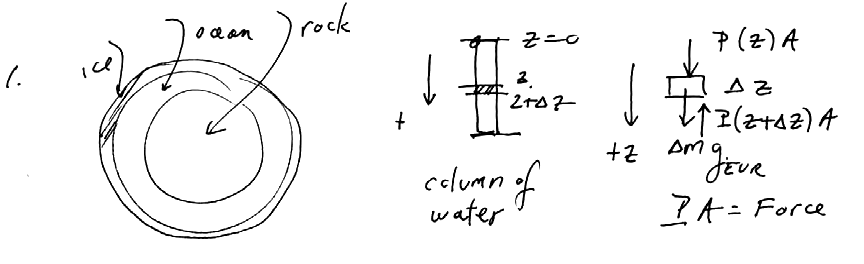 1.
ice
ocean
rock
+
z=0
z
z+Δz
column of
water
+z
P(z)A
Δz
P(z+Δz)A
Δm g_EUR
P A = Force